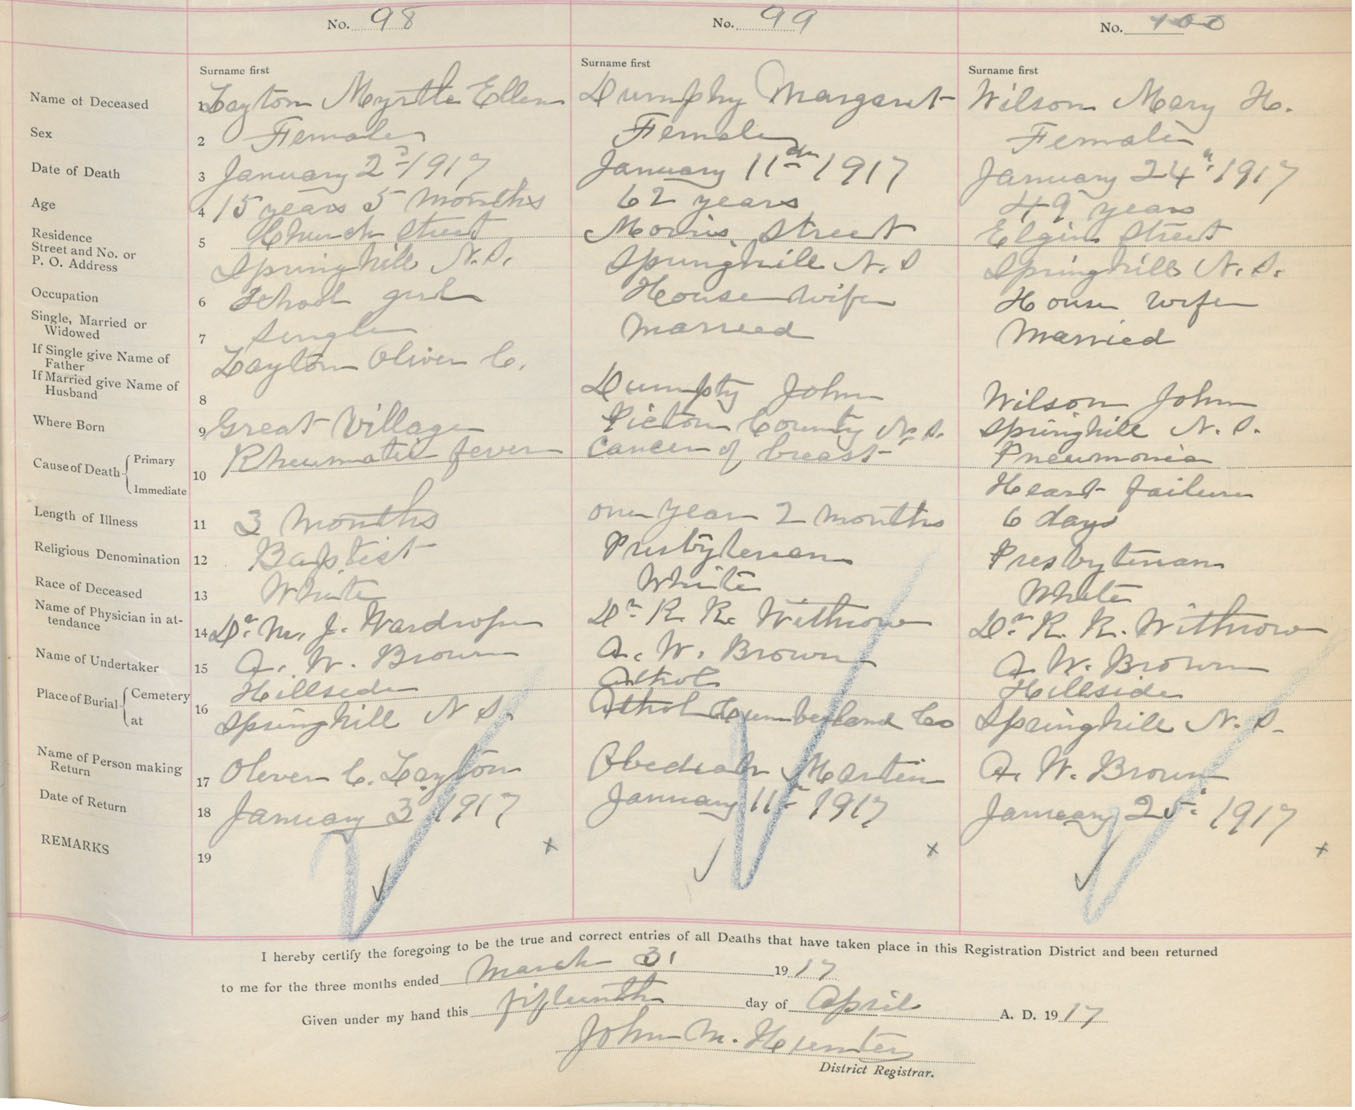 No. 98
No. 99
No. 100
Surname first
Surname first
Surname first
Name of Deceased 1 Layton Myrtle Ellen Dumphy Margaret Wilson Mary H.
Sex 2 Female Female Female
Date of Death 3 January 2nd 1917 January 11th 1917 January 24th 1917
Age 4 15 years 5 months 62 years 49 years
Residence
Street and No. or
P. O. Address
5 Church Street Morris Street Elgin Street
Springhill N.S. Springhill N.S Springhill N.S.
Occupation 6 School girl House wife House wife
Single, Married or
Widowed
7 Single Married Married
If Single give Name of
Father
Layton Oliver C.
If Married give Name of
Husband
8 Dumpty John Wilson John
Where Born 9 Great Village Pictou County N.S. Springhill N.S.
Cause of Death Primary 10 Rheumatic fever Cancer of breast Pneumonia
Immediate Heart failure
Length of Illness 11 3 months one year 2 months 6 days
Religious Denomination 12 Baptist Presbyterian Presbyterian
Race of Deceased 13 White White White
Name of Physician in at-
tendance
14 Dr. M. J. Wardrope Dr. R. R. Withrow Dr. R. R. Withrow
Name of Undertaker 15 A. W. Brown A. W. Brown A. W. Brown
Place of Burial Cemetery 16 Hillside Athol Hillside
at Springhill N.S. Athol Cumberland Co Springhill N.S.
Name of Person making
Return
17 Oliver C. Layton Obediah Martin A. W. Brown
Date of Return 18 January 3 1917 January 11th 1917 January 25th 1917
REMARKS 19
I hereby certify the foregoing to be the true and correct entries of all Deaths that have taken place in this Registration District and been returned
to me for the three months ended March 31 1917
Given under my hand this fifteenth day of April A. D. 1917
John M. Hunter
District Registrar.